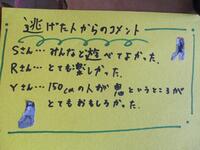 逃げた人からのコメント
Sさん…みんなと遊べてよかった。
Rさん…とても楽しかった。
Yさん…150cmの人が鬼というところが
とてもおもしろかった。